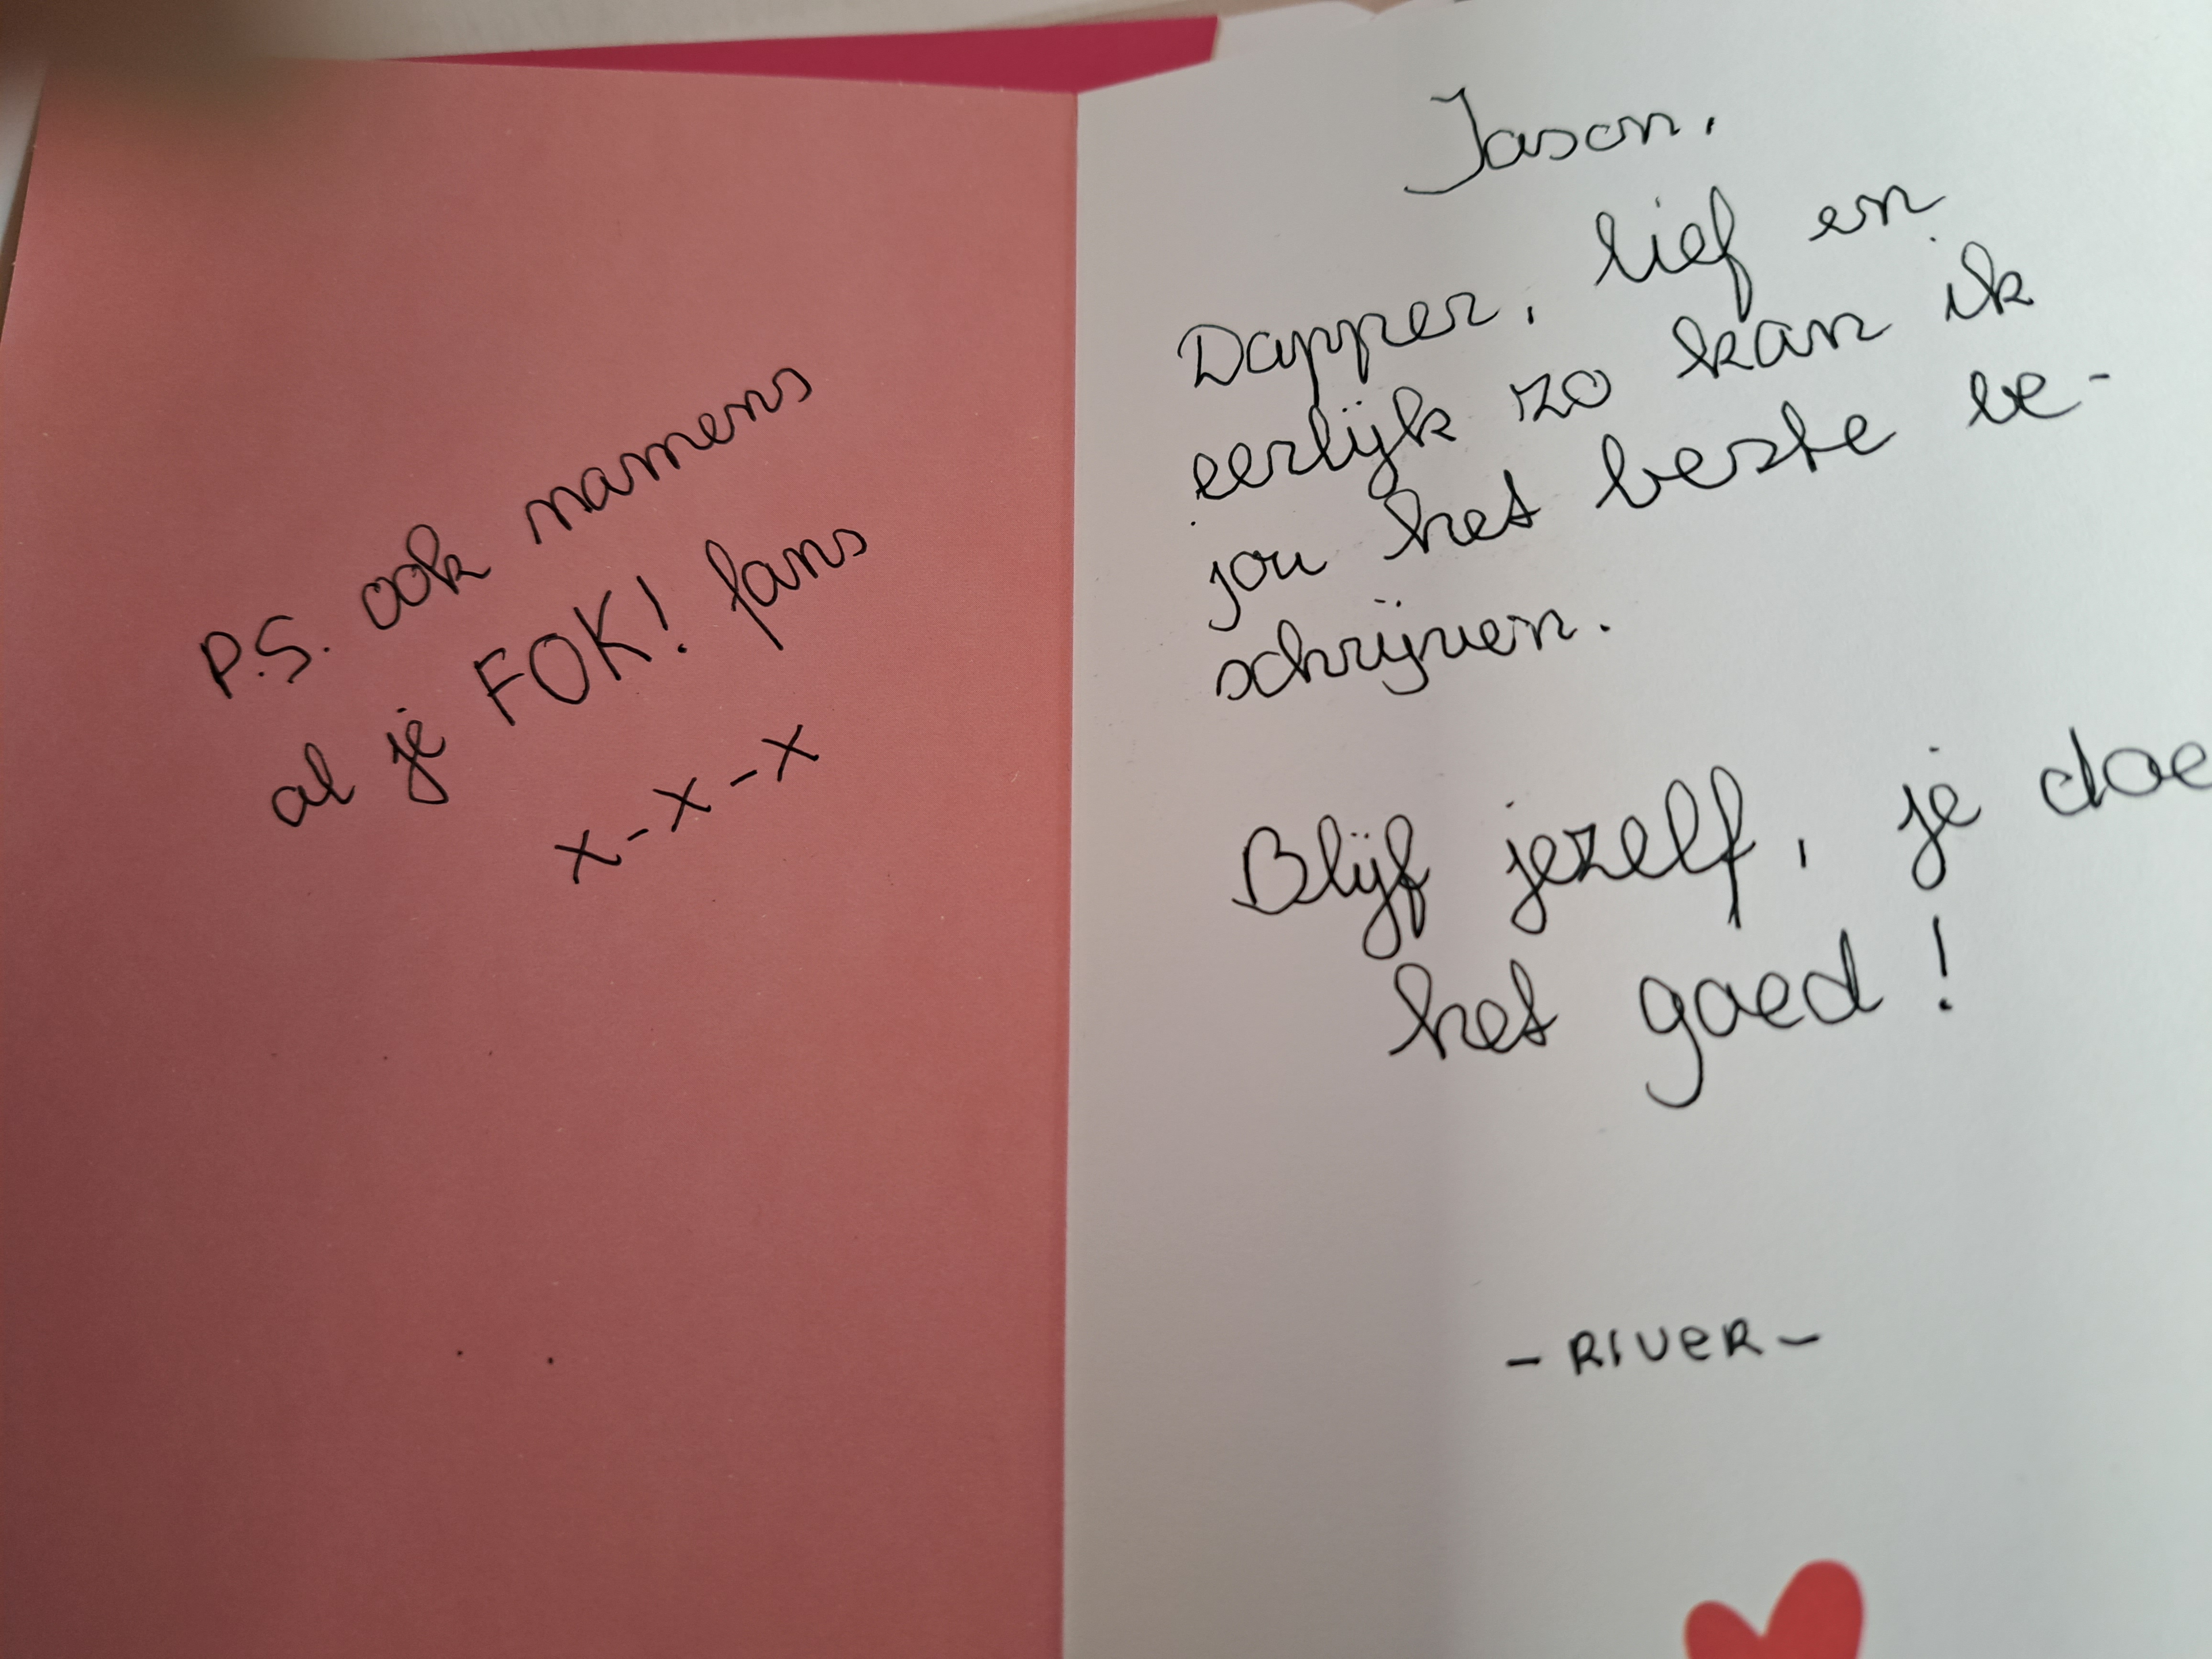 P.S. ook namens
al je FOK! fans
x-x-x
Jason,
Dapper, lief en
eerlijk zo kan ik
jou het beste be-
schrijven.
Blijf jezelf, je doe
het goed!
- RIVER -